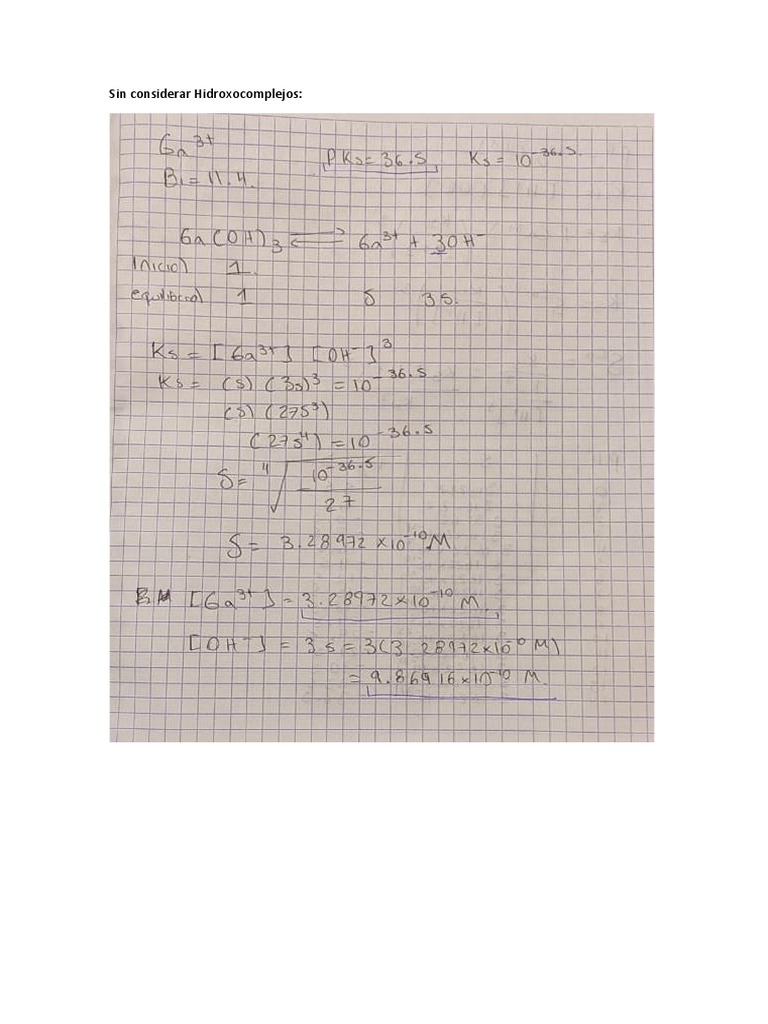 Sin considerar Hidroxocomplejos:
Ga³⁺
PKs = 36.5, Ks = 10⁻³⁶·⁵
B₁ = 11.4.
Ga(OH)₃ ⇌ Ga³⁺ + 3OH⁻
Inicio) 1.
equilibrio) 1 S 3S.
Ks = [Ga³⁺] [OH⁻]³
Ks = (S) (3s)³ = 10⁻³⁶·⁵
(S) (27S³)
(27S⁴) = 10⁻³⁶·⁵
S = ⁴√(10⁻³⁶·⁵ / 27)
S = 3.28972 x10⁻¹⁰ M
[Ga³⁺] = 3.28972x10⁻¹⁰ M.
[OH⁻] = 3s = 3(3.28972x10⁻¹⁰ M)
= 9.86916x10⁻¹⁰ M.